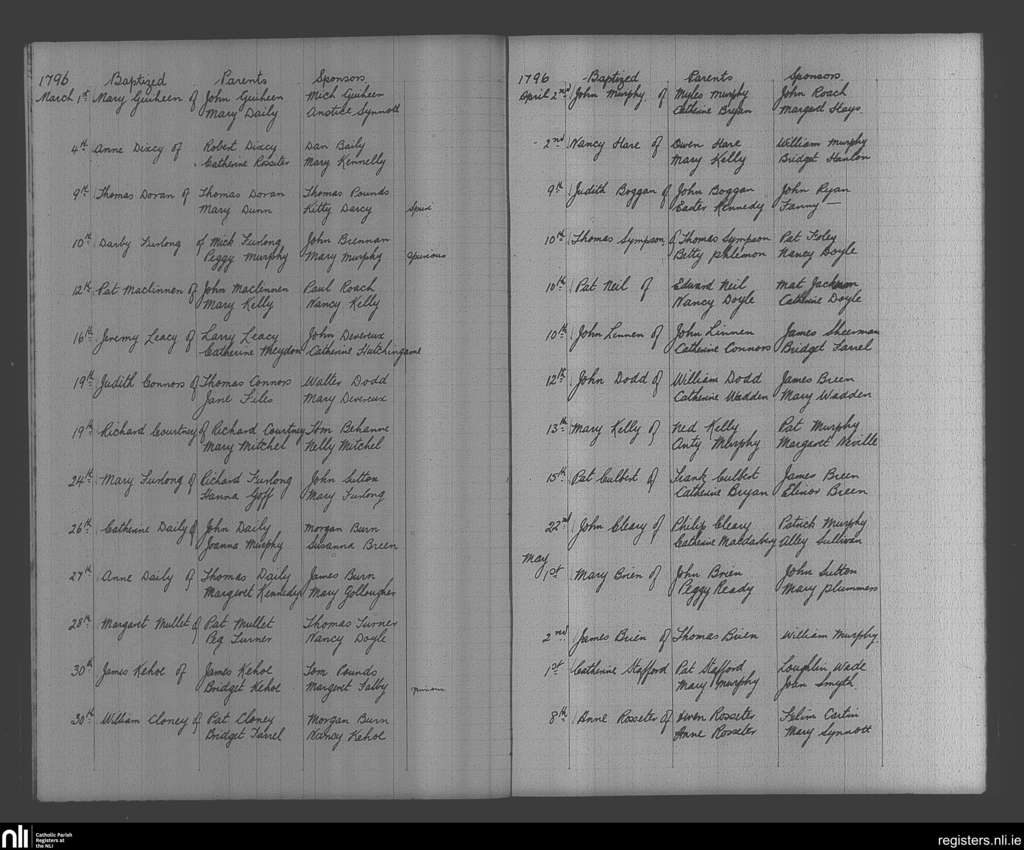 1796 Baptized Parents Sponsors
March 1st Mary Guiheen of John Guiheen Mich Guiheen
Mary Daily Anstice Synnott
4th Anne Dixey of Robert Dixey Dan Baily
Catherine Rossiter Mary Kennelly
9th Thomas Doran of Thomas Doran Thomas Pounds
Mary Dunn Kitty Darcy Spuri
10th Darby Furlong of Mick Furlong John Brennan
Peggy Murphy Mary Murphy Spurious
12th Pat Maclinnen of John Maclinnen Paul Roach
Mary Kelly Nancy Kelly
16th Jeremy Leacy of Larry Leacy John Devereux
Catherine Meydon Catherine Hutchingame
19th Judith Connors of Thomas Connors Walter Dodd
Jane Files Mary Devereux
19th Richard Courtney of Richard Courtney Tom Behanne
Mary Mitchel Nelly Mitchel
24th Mary Furlong of Richard Furlong John Sutton
Hanna Goff Mary Furlong
26th Catherine Daily of John Daily Morgan Burn
Joanna Murphy Susanna Breen
27th Anne Daily of Thomas Daily James Burn
Margaret Kennedy Mary Gollougher
28th Margaret Mullet of Pat Mullet Thomas Turner
Peg Turner Nancy Doyle
30th James Kehoe of James Kehoe Tom Pounds
Bridget Kehoe Margaret Falby purious
30th William Cloney of Pat Cloney Morgan Burn
Bridget Farrel Nancy Kehoe
1796 Baptized Parents Sponsors
April 2nd John Murphy of Myles Murphy John Roach
Catherine Bryan Margaret Hays
2nd Nancy Hare of Owen Hare William Murphy
Mary Kelly Bridget Hanlon
9th Judith Boggan of John Boggan John Ryan
Easter Kennedy Fanny —
10th Thomas Sympson of Thomas Sympson Pat Foley
Betty Phlemon Nancy Doyle
10th Pat Neil of Edward Neil Mat Jackman
Nancy Doyle Catherine Doyle
10th John Lennen of John Linnen James Sheerman
Catherine Connors Bridget Farrel
12th John Dodd of William Dodd James Breen
Catherine Wadden Mary Wadden
13th Mary Kelly of Ned Kelly Pat Murphy
Anty Murphy Margaret Neville
15th Pat Culbert of Frank Culbert James Breen
Catherine Bryan Elinor Breen
22nd John Cleary of Philip Cleary Patrick Murphy
Catherine Alley Sullivan
May
1st Mary Brien of John Brien John Sutton
Peggy Ready Mary Plummers
2nd James Brien of Thomas Brien William Murphy
1st Catherine Stafford Pat Stafford Loughlin Wade
Mary Murphy John Smyth
8th Anne Rosseter of Owen Rosseter Felix
Anne Rosseter Mary Synnott
nli Catholic Parish
Registers at
the NLI
registers.nli.ie